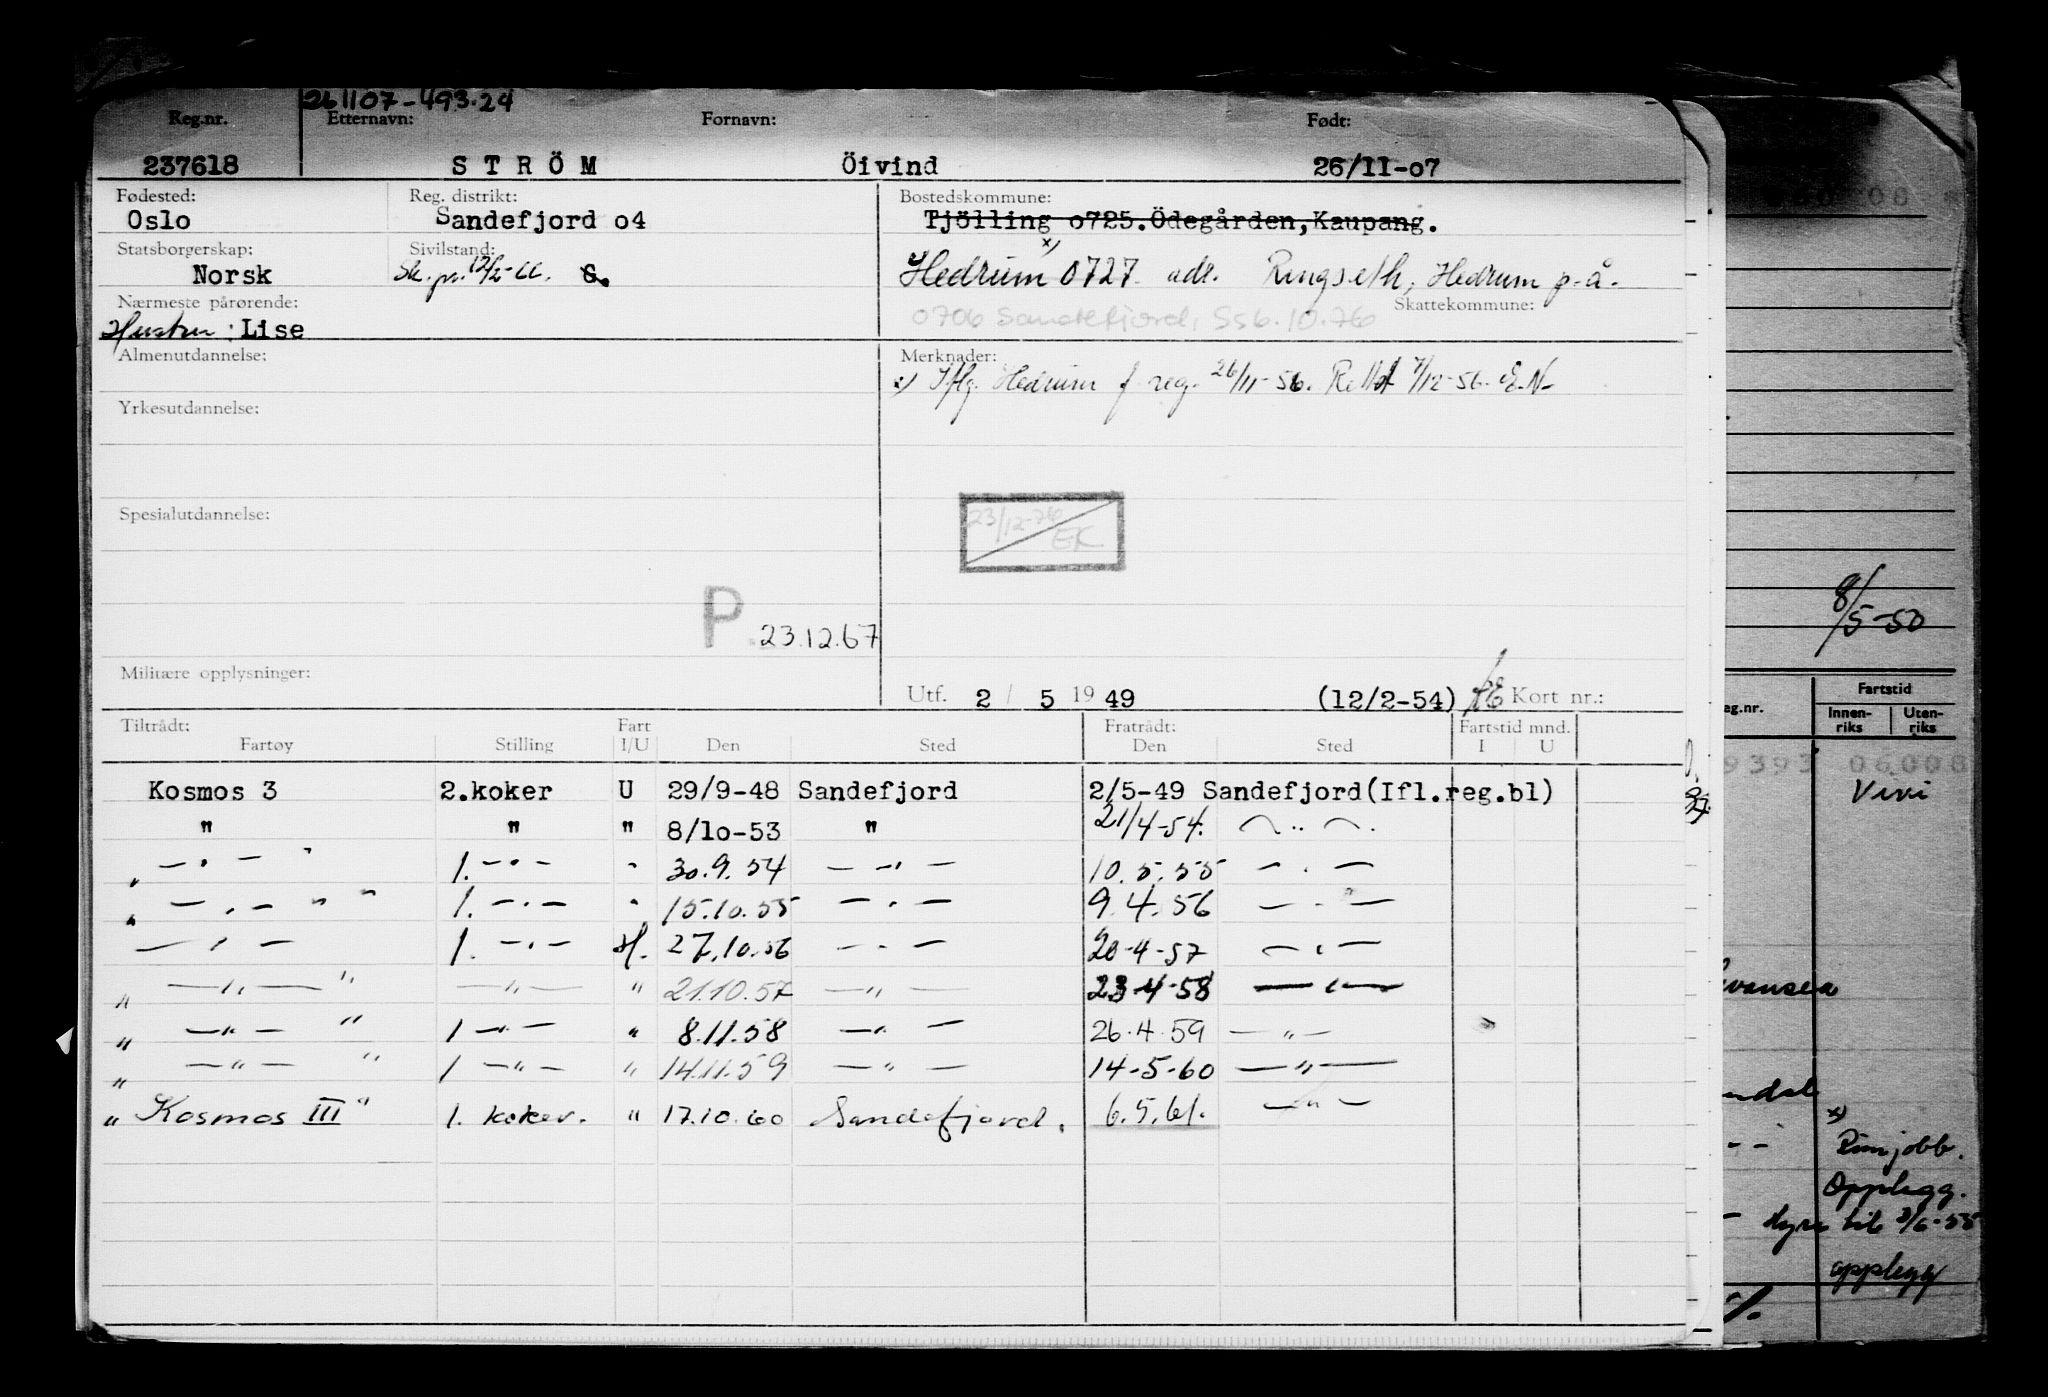 261107-493.24
Reg.nr. Etternavn: Fornavn: Født:
237618 STRÖM Öivind 26/11-07
Fødested: Reg. distrikt: Bostedskommune:
Oslo Sandefjord 04 Tjölling 0725.Ödegården,Kaupang.
Statsborgerskap: Sivilstand: x)
Norsk Sk. pr. 12/2-66. G. Hedrum 0727 adr. Ringseth, Hedrum p.å.
Nærmeste pårørende: Skattekommune:
Hustru: Lise 0706 Sandefjord, Ss6.10.76
Almenutdannelse: Merknader:
x) Iflg. Hedrum f. reg. 26/11-56. Rettet 7/12-56. E.N-
Yrkesutdannelse:
Spesialutdannelse: 23/12-76 EK
P. 23.12.67
Militære opplysninger:
Utf. 2 / 5 1949 (12/2-54) Kort nr.:
Tiltrådt: Fart Fratrådt: Fartstid mnd.
Fartøy Stilling I/U Den Sted Den Sted I U
Kosmos 3 2.koker U 29/9-48 Sandefjord 2/5-49 Sandefjord(Ifl.reg.bl)
" " " 8/10-53 " 21/4-54. — " —.
„ — " — " 1. — " — " 30.9.54 — " — 10.5.55 — " —
„ — " — " " 1. — " — " 15.10.55 — " — 9.4.56 — " —
— " — 1. — " — H. 27.10.56 — " — 20-4-57 — " —
„ — " — " — " — " 21.10.57 — " — 23-4-58 — " —
„ — " — " 1 — " — " 8.11.58 — " — 26.4.59 — " —
„ — " — " 1 — " — " 14.11.59 — " — 14-5-60 — " —
„ Kosmos III " 1. koker. " 17.10.60 Sandefjord. 6.5.61. — " —
8/5-50
eg.nr. Fartstid
Innen-riks Uten-riks
9393 06008
Vivi
x)
Opplegg.
hyre til 3/6-55
opplegg